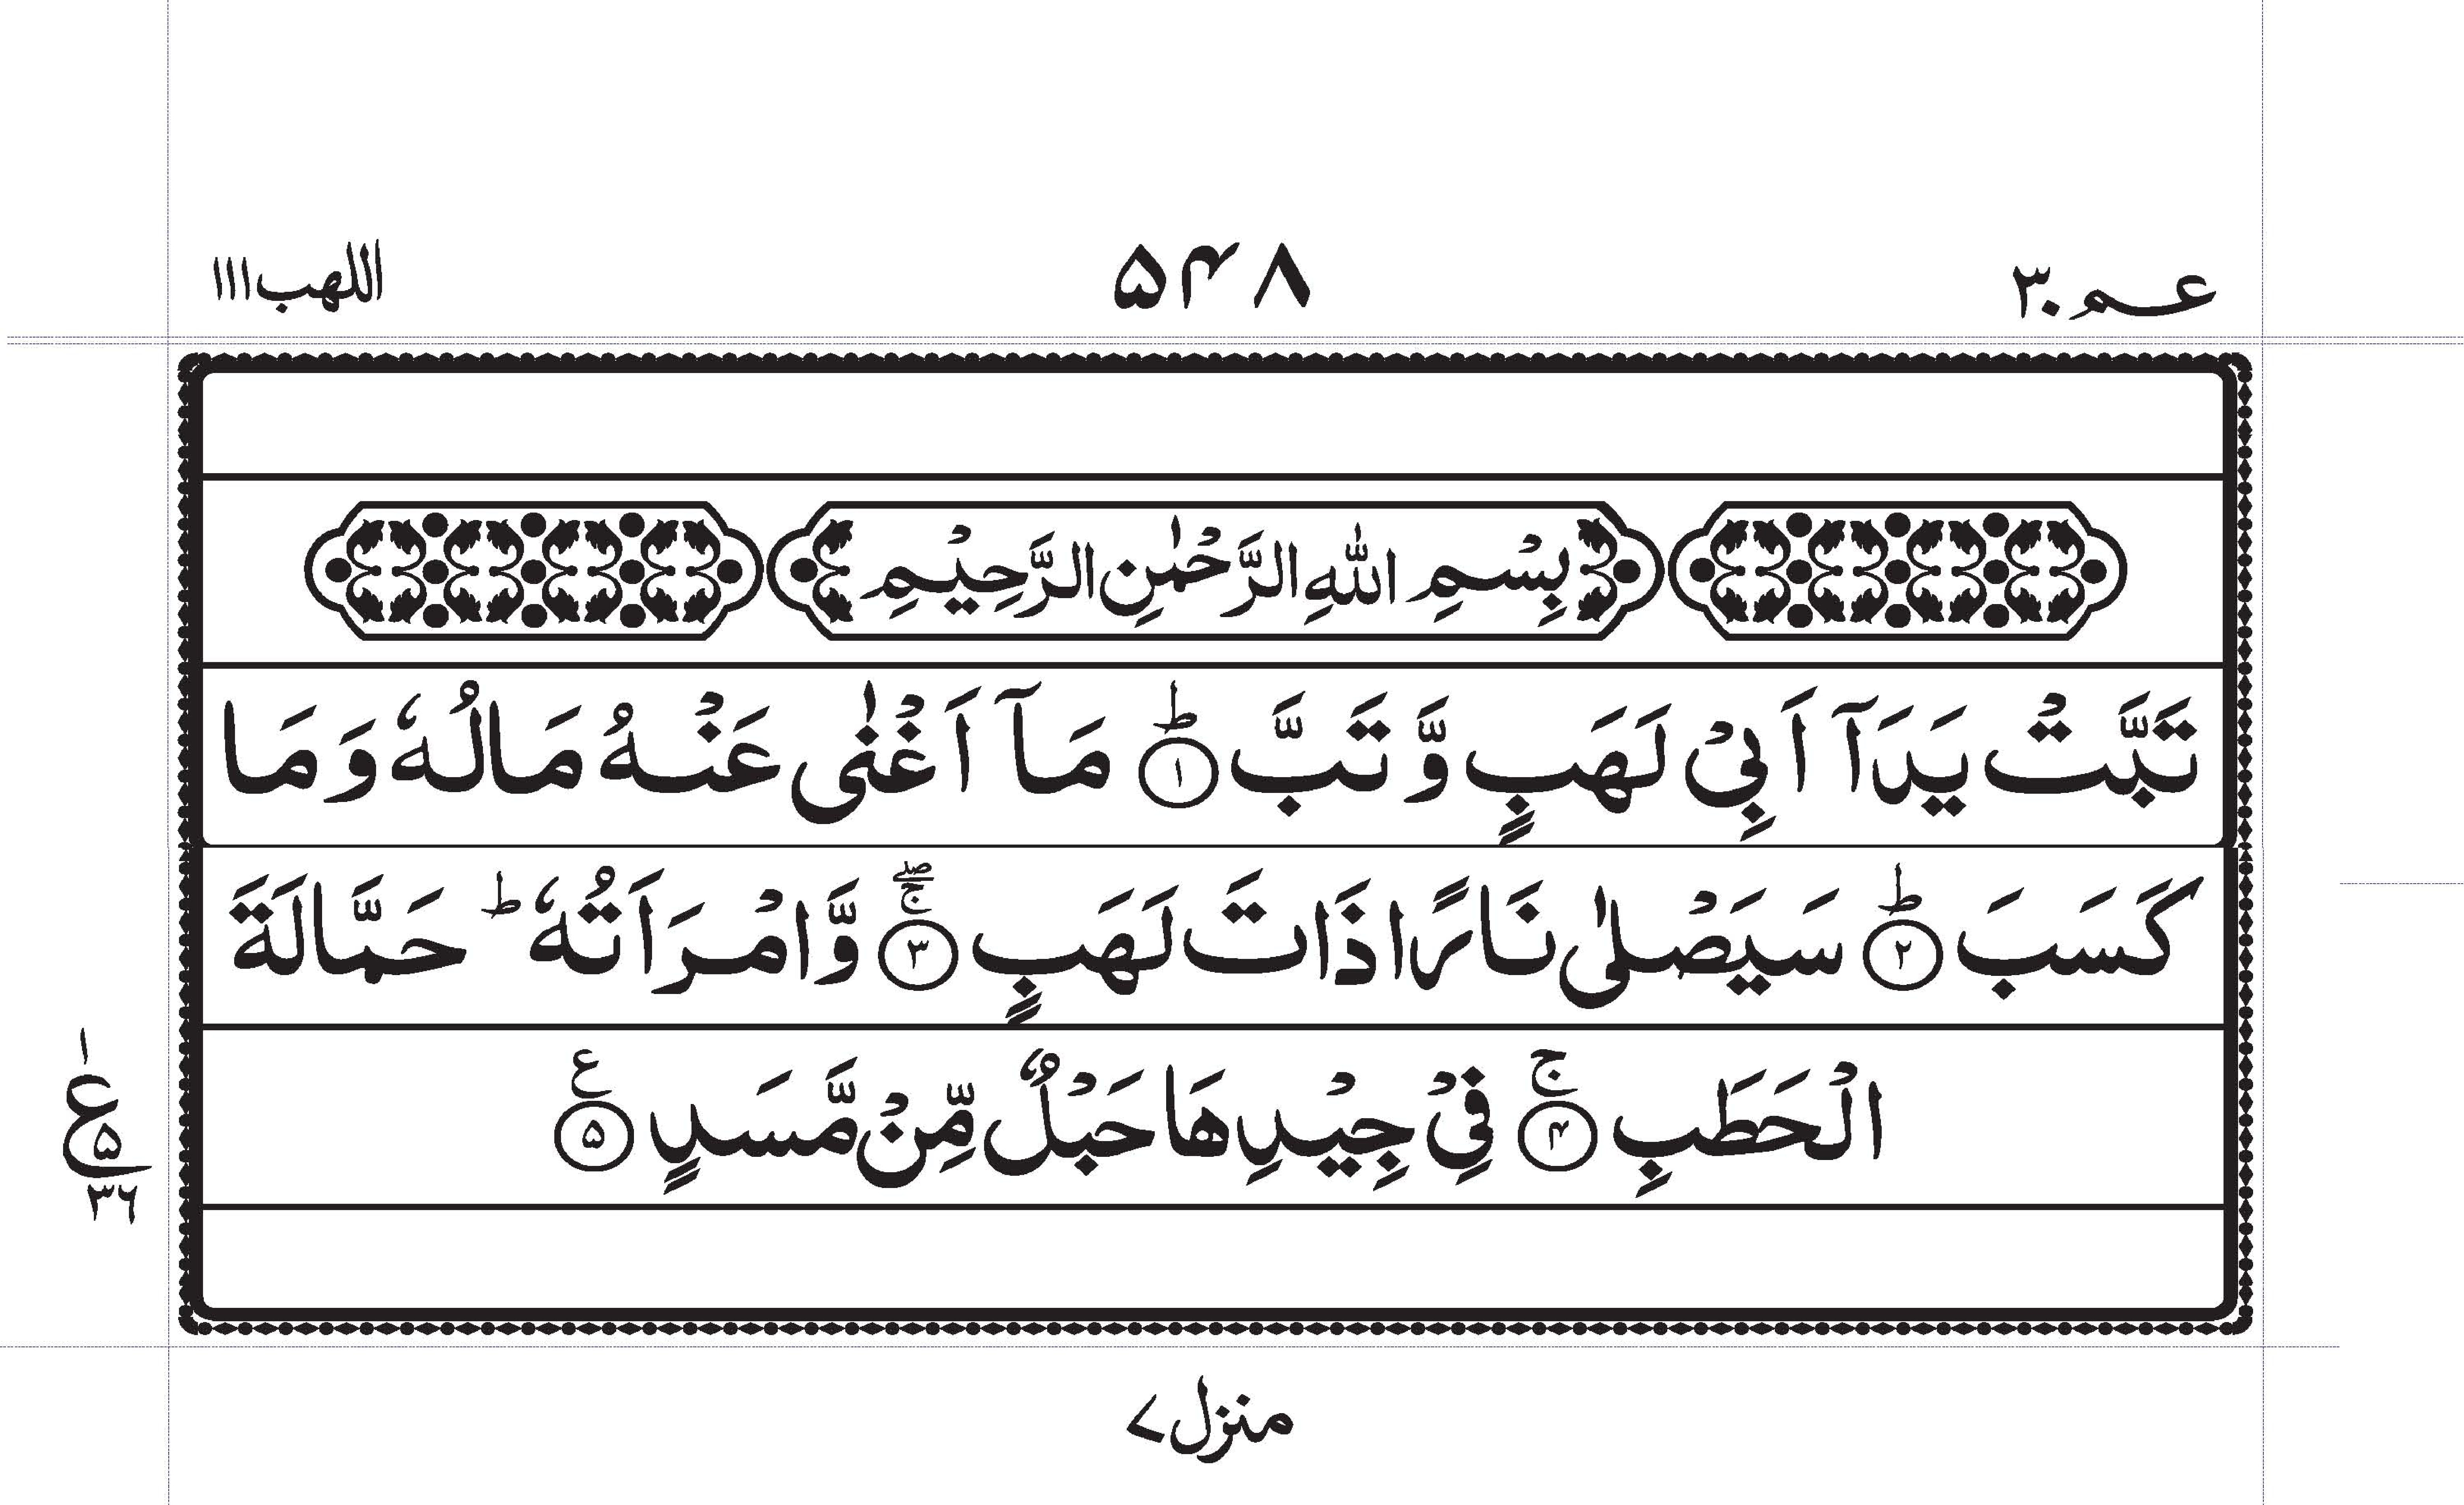 عم ۳۰ ۵۴۸ اللهب ۱۱۱
بِسْمِ اللّٰهِ الرَّحْمٰنِ الرَّحِیْمِ
تَبَّتْ یَدَاۤ اَبِیْ لَهَبٍ وَّ تَبَّ ؕ﴿۱﴾ مَاۤ اَغْنٰی عَنْهُ مَالُهٗ وَ مَا
كَسَبَ ؕ﴿۲﴾ سَیَصْلٰی نَارًا ذَاتَ لَهَبٍ ۚۖ﴿۳﴾ وَّ امْرَاَتُهٗ ؕ حَمَّالَةَ
الْحَطَبِ ۚ﴿۴﴾ فِیْ جِیْدِهَا حَبْلٌ مِّنْ مَّسَدٍ ﴿۵﴾ ع
۱ ع ۵ ۳۶
منزل ۷